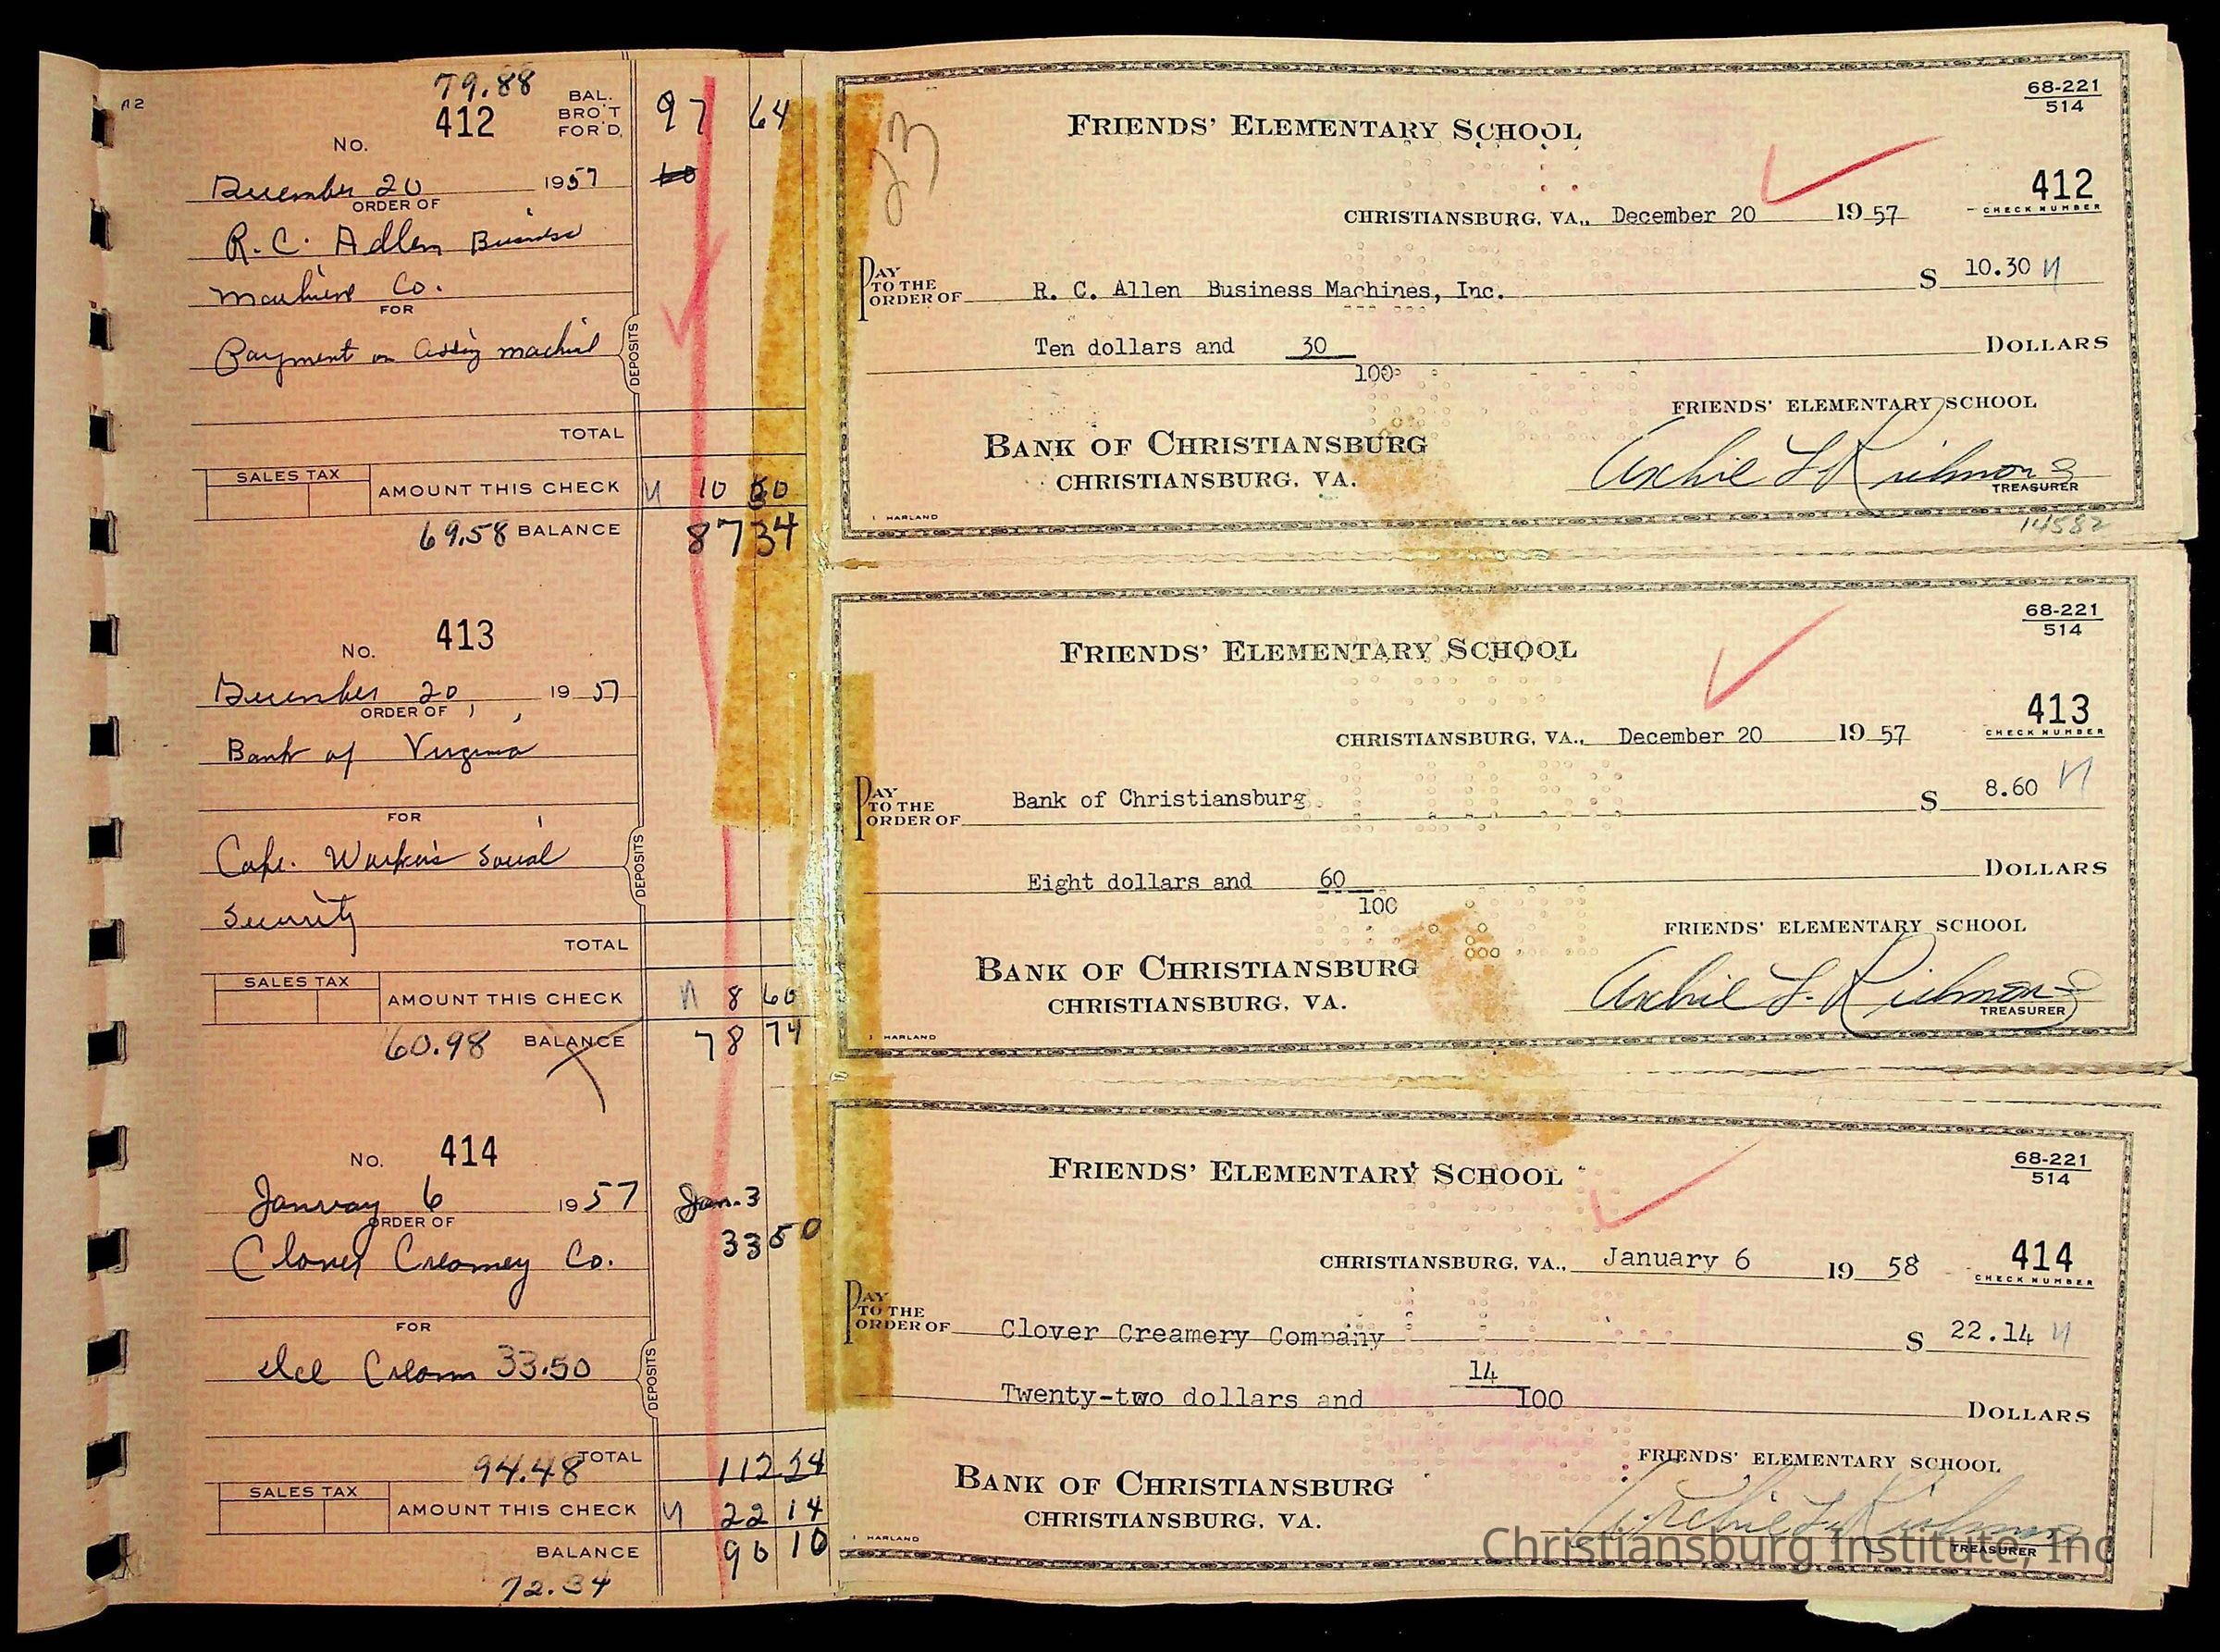 79.88
No. 412 BAL. BRO'T FOR'D. 97 64
December 20 1957 60
ORDER OF
R. C. Adlen Business
Machine Co.
FOR
Payment on Adding machine
DEPOSITS
TOTAL
SALES TAX
AMOUNT THIS CHECK 10
69.58 BALANCE 87 34
No. 413
December 20, 1957
ORDER OF
Bank of Virginia
FOR
Cafe. Worker's Social
Security
DEPOSITS
TOTAL
SALES TAX
AMOUNT THIS CHECK 8 60
60.98 BALANCE 78 74
No. 414
January 6 1957 Jan. 3
ORDER OF
33 50
Clover Creamey Co.
FOR
Ice Cream 33.50
DEPOSITS
94.48 TOTAL 112 24
SALES TAX
AMOUNT THIS CHECK 22 14
BALANCE 90 10
72.34
23
FRIENDS' ELEMENTARY SCHOOL
68-221
514
412
CHECK NUMBER
CHRISTIANSBURG, VA., December 20 19 57
PAY TO THE ORDER OF R. C. Allen Business Machines, Inc. $ 10.30
Ten dollars and 30
100
DOLLARS
FRIENDS' ELEMENTARY SCHOOL
BANK OF CHRISTIANSBURG
CHRISTIANSBURG, VA.
Archie L. Richmond
TREASURER
HARLAND
14582
FRIENDS' ELEMENTARY SCHOOL
68-221
514
413
CHECK NUMBER
CHRISTIANSBURG, VA., December 20 19 57
PAY TO THE ORDER OF Bank of Christiansburg $ 8.60
Eight dollars and 60
100
DOLLARS
FRIENDS' ELEMENTARY SCHOOL
BANK OF CHRISTIANSBURG
CHRISTIANSBURG, VA.
Archie L. Richmond
TREASURER
HARLAND
FRIENDS' ELEMENTARY SCHOOL
68-221
514
414
CHECK NUMBER
CHRISTIANSBURG, VA., January 6 19 58
PAY TO THE ORDER OF Clover Creamery Company $ 22.14
Twenty-two dollars and 14
100
DOLLARS
FRIENDS' ELEMENTARY SCHOOL
BANK OF CHRISTIANSBURG
CHRISTIANSBURG, VA.
Archie L. Richmond
TREASURER
HARLAND
Christiansburg Institute, Inc